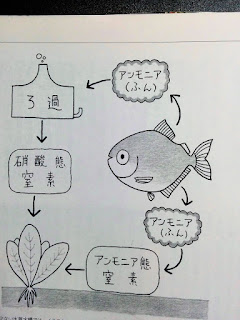 アンモニア
(ふん)
ろ過
硝酸態
窒素
アンモニア
(ふん)
アンモニア態
窒素